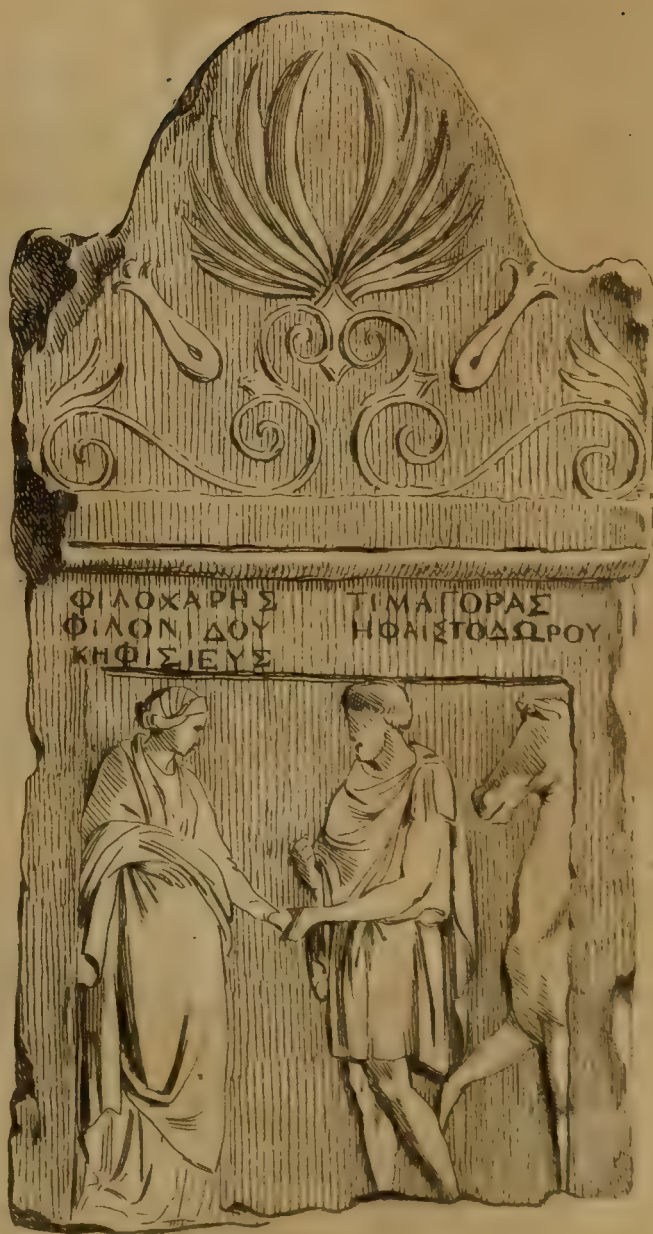 ΦΙΛΟΧΑΡΗΣ
ΦΙΛΟΝΙΔΟΥ
ΚΗΦΙΣΙΕΥΣ
ΤΙΜΑΓΟΡΑΣ
ΗΦΑΙΣΤΟΔΩΡΟΥ